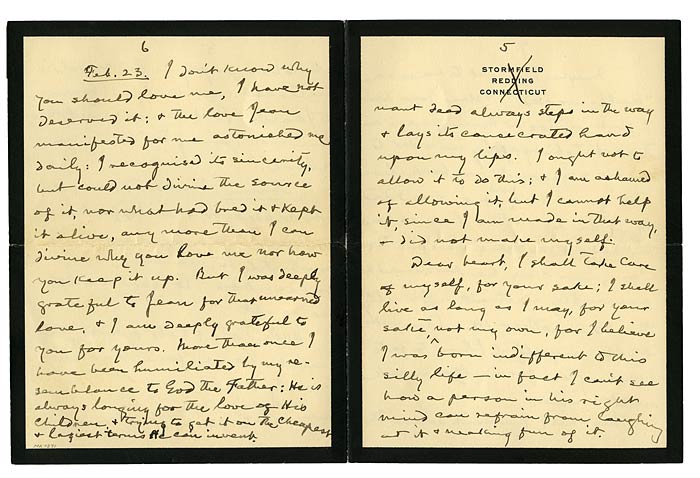 6
Feb. 23. I don't know why
you should love me, I have not
deserved it; & the love Jean
manifested for me astonished me
daily: I recognised its sincerity,
but could not divine the source
of it, nor what had bred it & kept
it alive, any more than I can
divine why you love me nor how
you keep it up. But I was deeply
grateful to Jean for that unearned
love, & I am deeply grateful to
you for yours. More than once I
have been humiliated by my re-
semblance to God the Father: He is
always longing for the love of His
children, & trying to get it on the cheapest
& laziest terms He can invent.
5
STORMFIELD
REDDING
CONNECTICUT
dead always steps in the way
& lays its consecrated hand
upon my lips. I ought not to
allow it to do this; & I am ashamed
of allowing it, but I cannot help
it, since I am made in that way,
& did not make myself.
Dear heart, I shall take care
of myself, for your sake; I shall
live as long as I may, for your
sake, not my own, for I believe
I was born indifferent to this
silly life — in fact I can't see
how a person in his right
mind can refrain from laughing
at it & making fun of it.